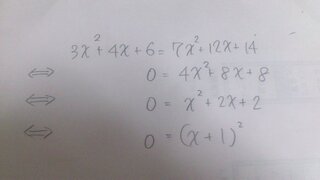 3x² + 4x + 6 = 7x² + 12x + 14
⇔ 0 = 4x² + 8x + 8
⇔ 0 = x² + 2x + 2
⇔ 0 = (x + 1)²